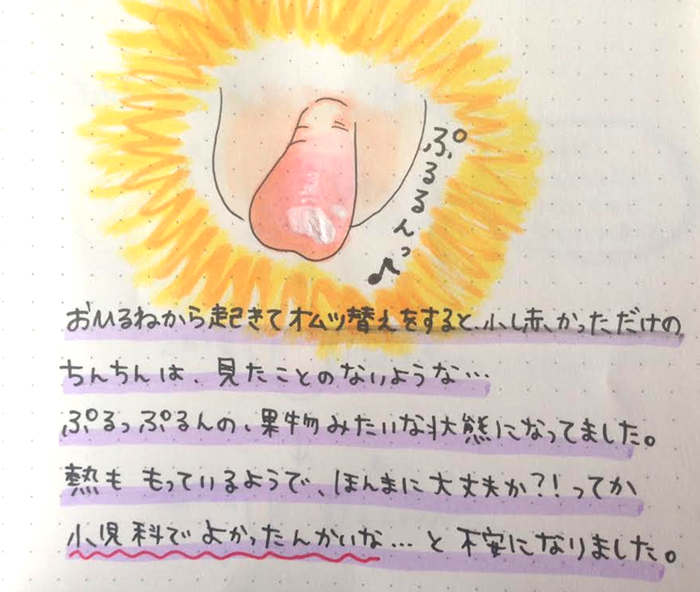 ぷるるんっ♪
おひるねから起きてオムツ替えをすると、少し赤かっただけの
ちんちんは、見たことのないような…
ぷるっぷるんの、果物みたいな状態になってました。
熱も もっているようで、ほんまに大丈夫か?!ってか
小児科でよかったんかいな… と 不安になりました。